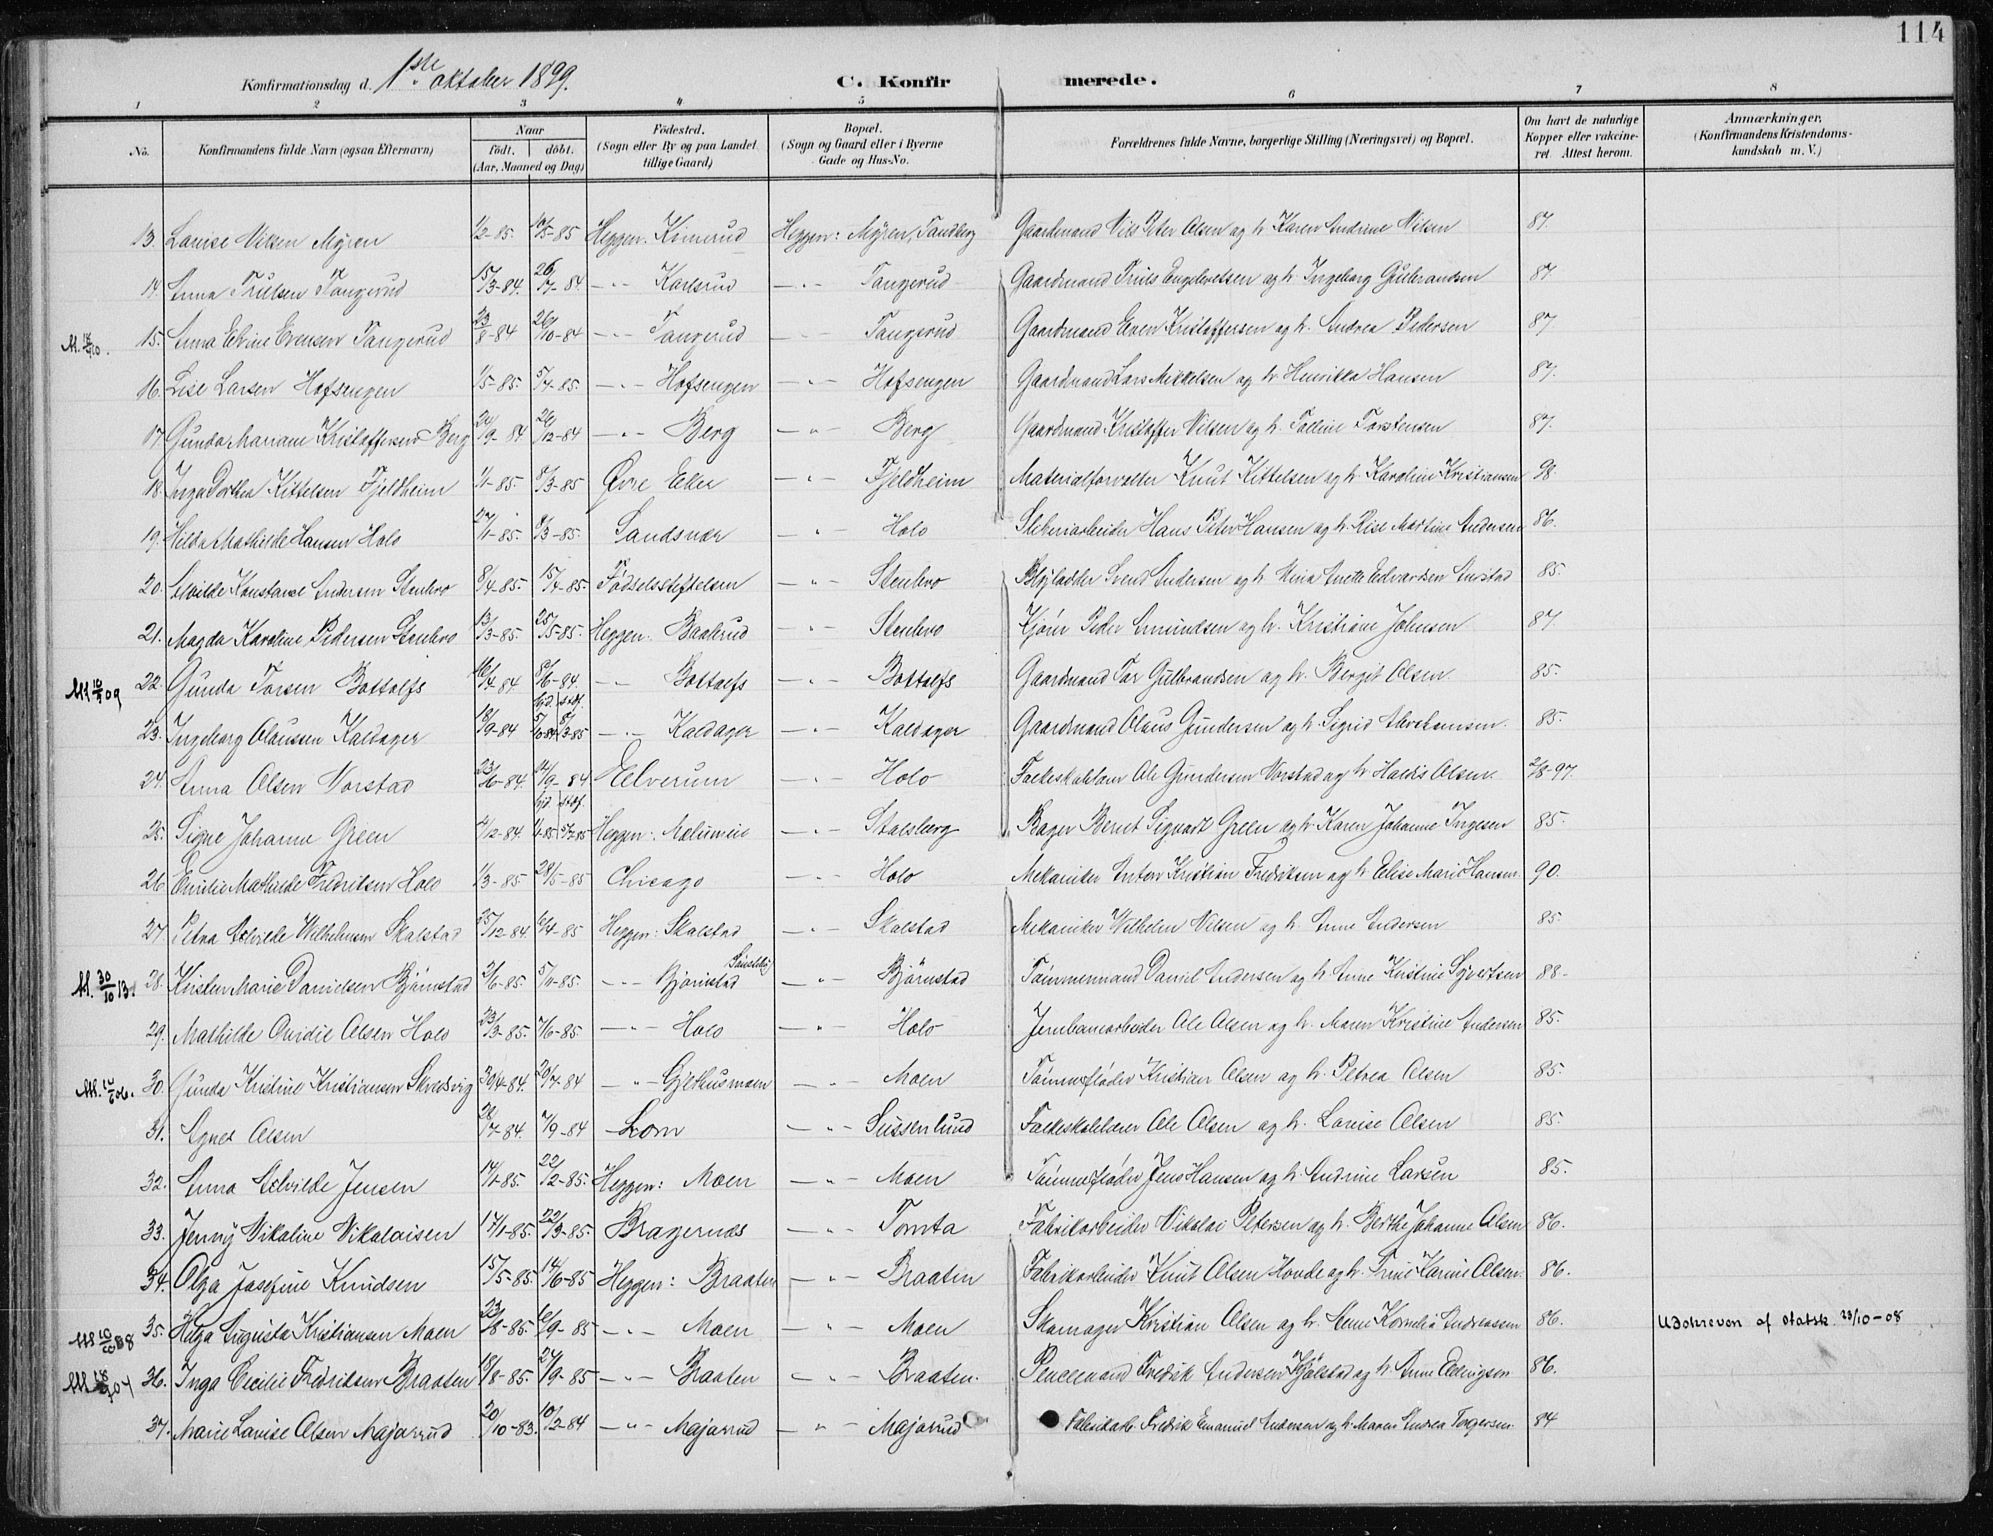 114
Konfirmationsdag d. 1ste oktober 1899. C. Konfir merede.
1 2 3 4 5 6 7 8
No. Konfirmandens fulde Navn (ogsaa Efternavn) Naar født. døbt. (Aar, Maaned og Dag) Fødested. (Sogn eller By og paa Landet tillige Gaard) Bopæl. (Sogn og Gaard eller i Byerne Gade og Hus-No. Forældrenes fulde Navne, borgerlige Stilling (Næringsvei) og Bopæl. Om havt de naturlige Kopper eller vakcineret. Attest herom. Anmærkninger. (Konfirmandens Kristendomskundskab m. V.)
13. Louise Nilsen Myren 1/2-85. 10/5-85 Heggen: Kimerud Heggen: Myren, Tandberg Gaardmand Nils Peter Olsen og h. Karen Andrine Nilsen 87.
14. Anna Trulsen Tangerud 15/3-84. 26/7-84. -"- Karlsrud -"- Tangerud Gaardmand Truls Engebretsen og h. Ingeborg Gulbrandsen 87.
M. 10. 15. Anna Elvine Evensen Tangerud 23/8-84 26/10-84 -"- Tangerud -"- Tangerud Gaardmand Even Kristoffersen og h. Andrea Pedersen 87
16. Lise Larsen Hofsengen 1/5-85. 5/7-85. -"- Hofsengen -"- Hofsengen Gaardmand Lars Mikkelsen og h. Henrikka Hansen 87.
17. Gunda Mariane Kristoffersen Berg 24/9-84 26/12-84 -"- Berg -"- Berg Gaardmand Kristoffer Nilsen og h. Torstensen 87.
18. Inga Dorthea Kittelsen Fjeldheim 1/1-85. 8/3-85 Øvre Eker -"- Fjeldheim Materialforvalter Knut Kittelsen og h. Karoline Kristiansen 98.
19. Hilda Mathilde Hansen Holo 27/1-85. 8/3-85. Sandsvær -"- Holo Sliberiarbeider Hans Peter Hansen og h. Lise Martine Andersen 86.
20. Konstanse Andersen Stenbro 8/4-85. 15/4-85. Fødselsstiftelsen -"- Stenbro Svend Andersen og h. Edvardsen 85.
21. Magda Karoline Pedersen Stenbro 13/3-85. 25/5-85. Heggen: Baalerud -"- Stenbro Kjører Peder Amundsen og h. Kristiane Johnsen 87.
M 10/09 22. Gunda Torsen Bottolfs 16/4-84 8/6-84. -"- Bottolfs -"- Bottolfs Gaardmand Tor Gulbrandsen og h. Bergit Olsen. 85.
23. Ingeborg Olausen Kaldager 18/9-84 hjd. 5/10-84 stdf. 8/3-85 -"- Kaldager -"- Kaldager Gaardmand Olaus Gundersen og h. Sigrid Abrahamsen. 85.
24. Anna Olsen Norstad 23/6-84. 14/9-84 Elverum -"- Holo Folkeskolelærer Ole Gundersen Norstad og h. Haldis Olsen. 2/8-97.
25. Signe Johanne Green 4/12-84. hjd. 1/1-85 stdf. 5/7-85 Heggen: Melumeie -"- Stalsberg Bager Bernt Sigvart Green og h. Karen Johanne Ingesen 85.
26. Emilie Mathilde Fredriksen Holo 1/3-85 28/5-85 Chicago -"- Holo Mekaniker Anton Kristian Fredriksen og h. Elise Marie Hansen. 90.
27. Petra Bolvilde Wilhelmsen Skalstad 25/12-84. 6/4-85 Heggen: Skalstad -"- Skalstad Mekaniker Wilhelm Nilsen og h. Anne Andersen 85.
M. 30/10 13. 28. Kirsten Marie Danielsen Bjørnstad 2/6-85. 5/11-85. -"- Bjørnstad -"- Bjørnstad Tømmermand Daniel Andersen og h. Anne Kristine Syvertsen 88-
29. Mathilde Ovidie Olsen Holo 23/3-85. 7/6-85 -"- Holo -"- Holo Jernbanearbeider Ole Olsen og h. Maren Kristine Andersen 85.
M. 06. 30. Gunda Kristine Kristiansen Skredsvig 30/4-84. 20/7-84 -"- Gjethusmoen -"- Moen Tømmerfløder Kristian Olsen og h. Petrea Olsen 85.
31. Agnes Olsen 28/7-84. 7/9-84 Lom -"- Sussenlund Folkeskolelærer Ole Olsen og h. Louise Olsen 85.
32. Anna Bolvilde Jensen 14/1-85. 22/2-85. Heggen: Moen -"- Moen Tømmerfløder Jens Hansen og h. Andrine Larsen 85.
33. Jenny Nikoline Nikolaisen 17/1-85. 22/3-85. Bragernæs -"- Tomta Fabrikarbeider Nikolai Petersen og h. Berthe Johanne Olsen 86.
34. Olga Josefine Knudsen 15/5-85. 14/6-85 Heggen: Braaten -"- Braaten Fabrikarbeider Knut Olsen Hovde og h. Trine Karine Olsen. 86.
M 10/ 08 35. Helga Augusta Kristiansen Moen 23/8-85. 6/9-85 -"- Moen -"- Moen Skomager Kristian Olsen og h. Anne Kornelia Andreassen 86. Udskreven af statsk. 23/10-08
M 04 36. Inga Cecilie Fredriksen Braaten 18/8-85. 27/9-85 -"- Braaten -"- Braaten. Fredrik Andersen Hjølstad og h. Anne Ellingsen 86.
37. Marie Louise Olsen Majorrud 20/10-83. 10/2-84 -"- Majorrud -"- Majorrud Fabrikarb. Fredrik Emanuel Andersen og h. Maren Andrea Torgersen. 84